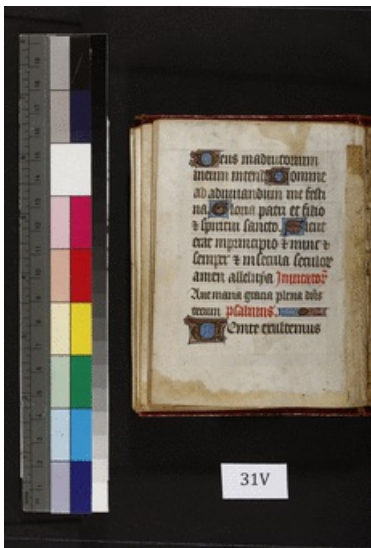 Deus in adiutorium
meum intende Domine
ad adiuuandum me festi
na Gloria patri et filio
& spiritui sancto. Sicut
erat in principio & nunc &
semper & in secula seculor
amen alleluya Inuitator
Aue maria gracia plena dns
tecum psalmus.
Uenite exultemus
31V